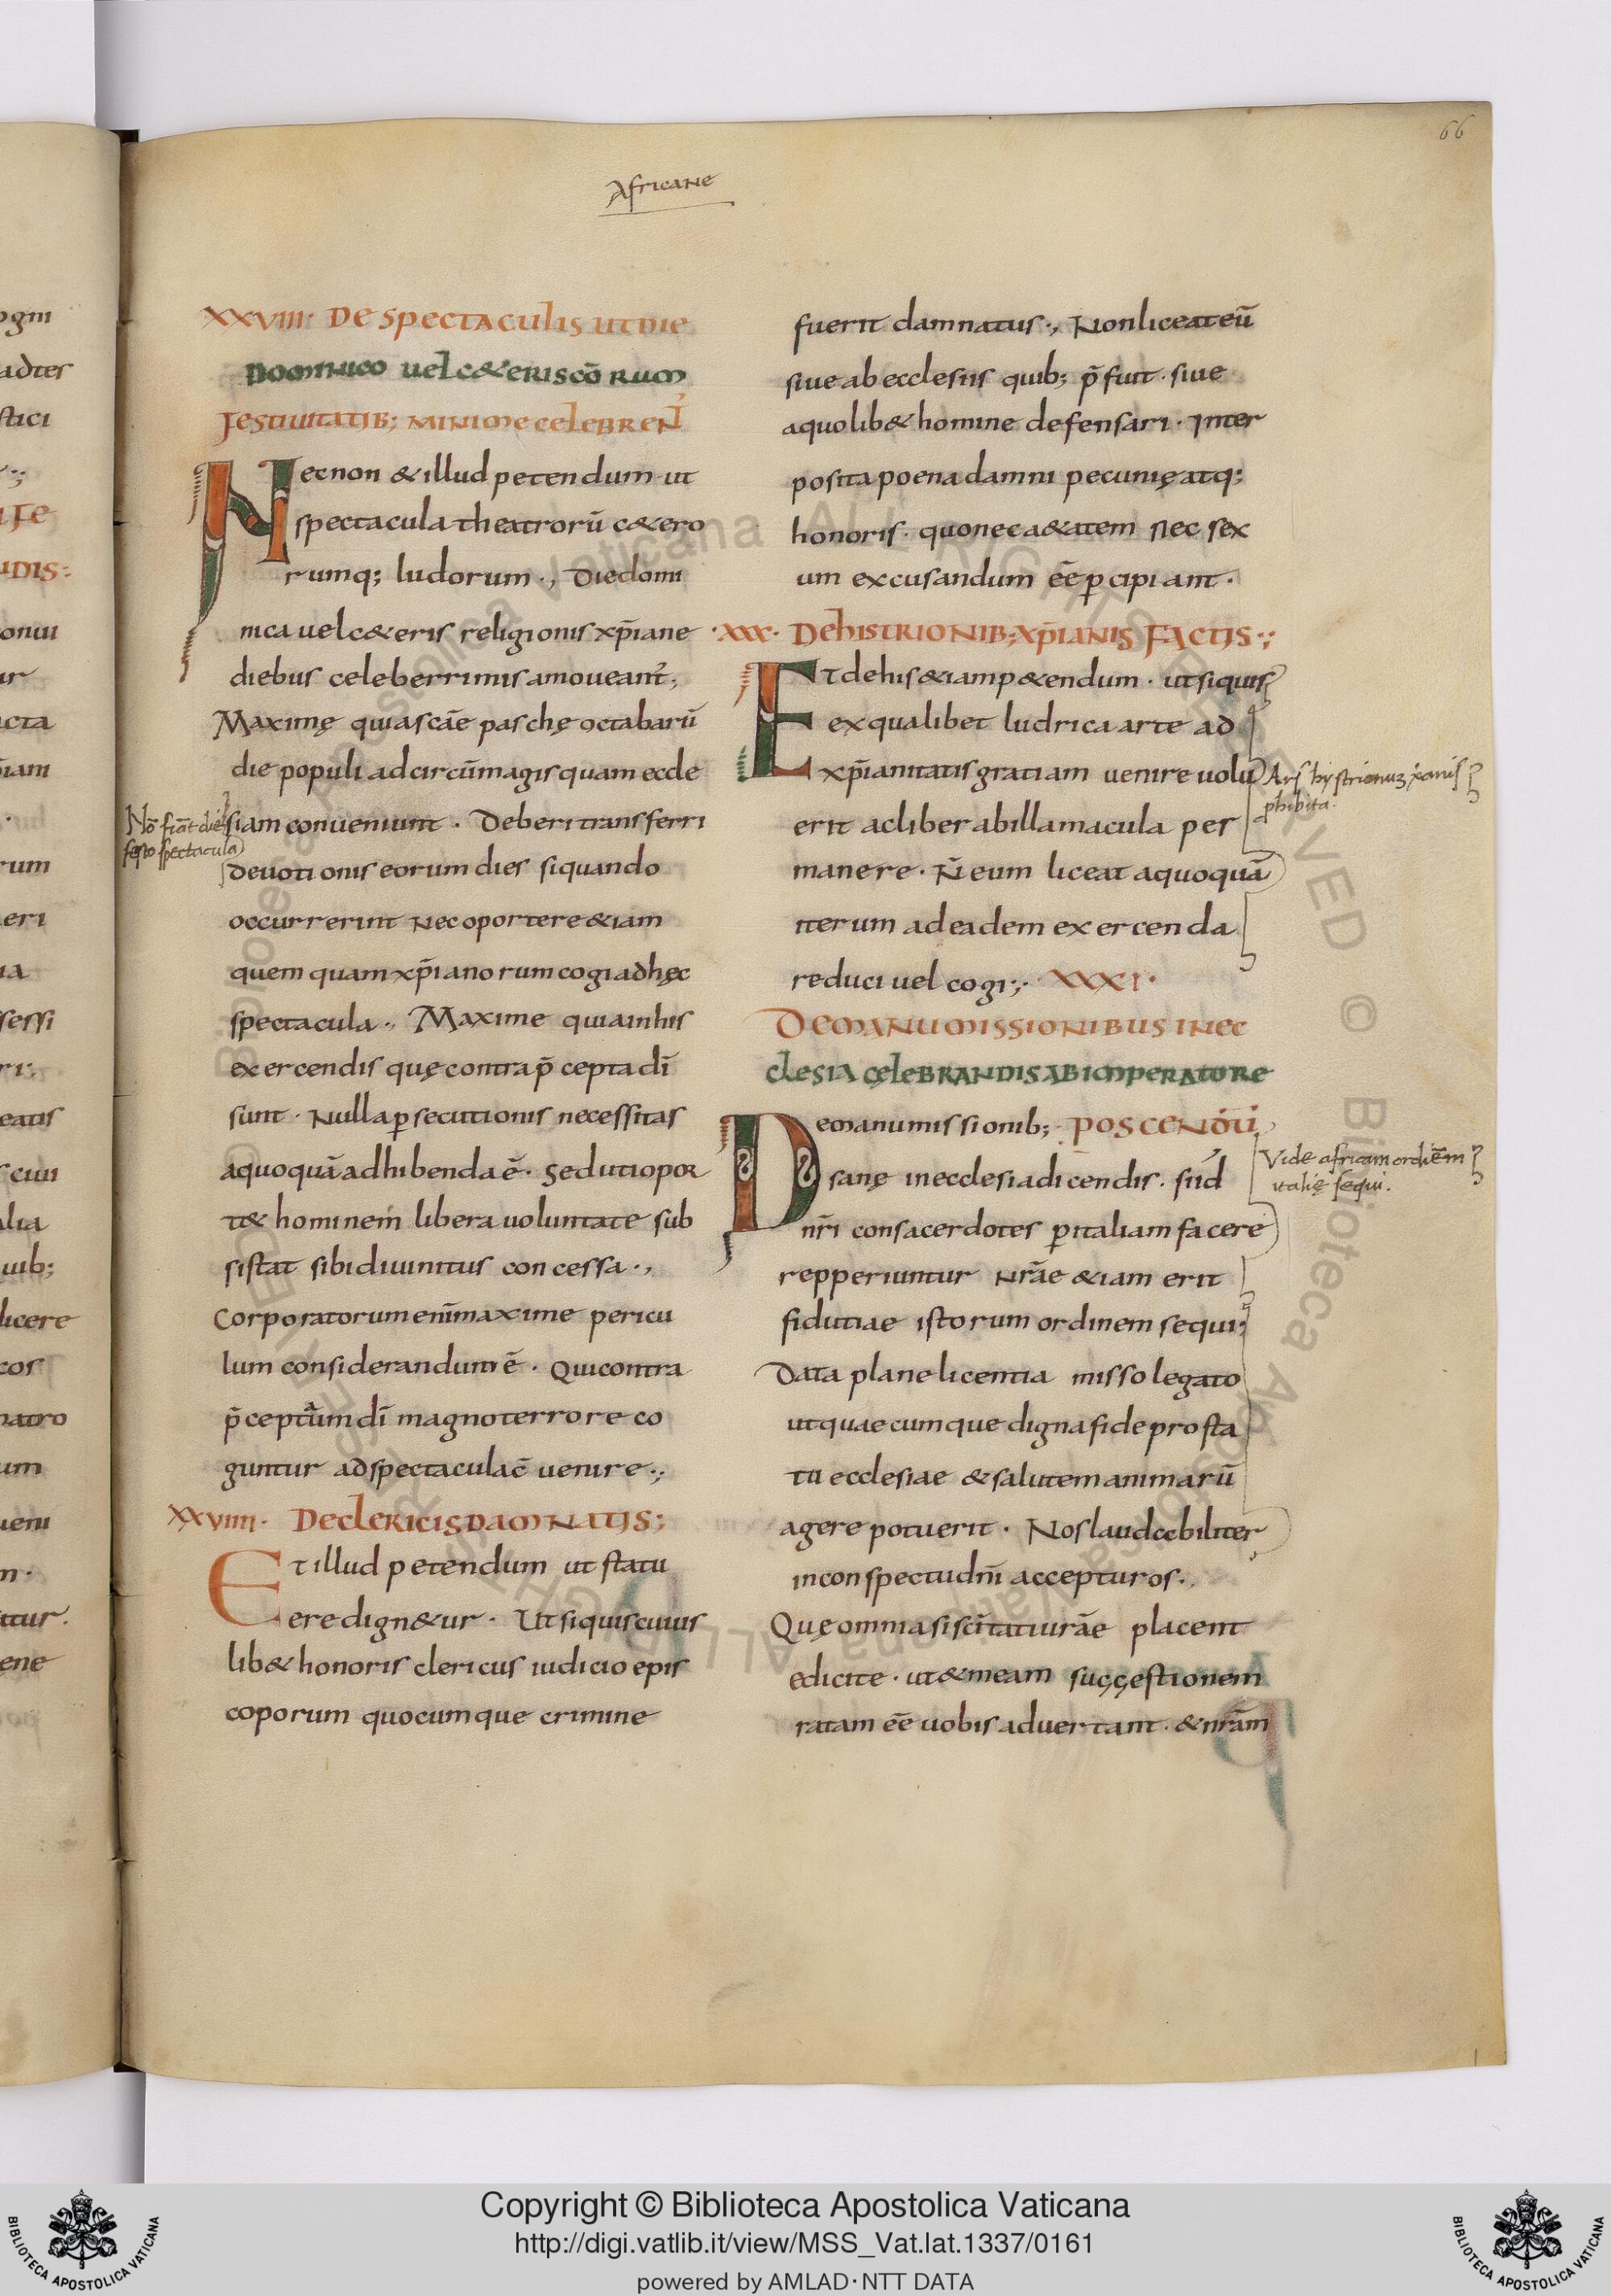 66
Africane
XXVIII· De spectaculis ut die
dominico uel c&eris scōrum
festiuitatib; minime celebrent̛
Necnon & illud petendum ut
spectacula theatrorū c&ero
rumq; ludorum·, die domi
nica uel c&eris religionis xp̄iane
diebus celeberrimis amoueant̛;
Maximę quia scāe paschę octabarū
die populi ad circū magis quam eccle
siam conueniunt· Deberi transferri
deuotionis eorum dies siquando
occurrerint nec oportere &iam
quemquam xp̄ianorum cogi ad hęc
spectacula·, Maxime quia in his
exercendis quę contra p̄cepta dī
sunt· nulla ꝑsecutionis necessitas
a quoquā adhibenda ē· sed uti opor
t& hominem libera uoluntate sub
sistat sibi diuinitus concessa·,
Corporatorum enī maxime pericu
lum considerandum ē· Qui contra
p̄ceptum dī magno terrore co
guntur ad spectacula c̄uenire·;
XXVIIII· De clericis damnatis;
Et illud petendum ut statu
ere dign&ur· Ut siquis cuius
lib& honoris clericus iudicio epis
coporum quocumque crimine
Nō fiāt die
festo spectacula
fuerit damnatus·, Non liceat eū
siue ab ecclesiis quib; p̄fuit· siue
a quolib& homine defensari· Inter
posita poena damni pecunię atq;
honoris· quo nec a&atem nec sex
um excusandum eē ꝑcipiant·
·XXX· De histrionib; xp̄ianis factis·;
Et de his &iam p&endum· ut siquis
ex qualibet ludrica arte ad
xp̄ianitatis gratiam uenire uolu
erit ac liber ab illa macula per
manere· N̄ eum liceat a quoquā
iterum ad eadem exercenda
reduci uel cogi·;· XXXI·
De manumissionibus in ec
clesia cęlebrandis ab imperatore
De manumissionib; poscendū
sanę in ecclesia dicendis. si id
nr̄i consacerdotes ꝑ italiam facere
repperiuntur nr̄ae &iam erit
fidutiae istorum ordinem sequi;
Data plane licentia misso legato
ut quaecumque digna fide pro sta
tu ecclesiae & salutem animarū
agere potuerit· Nos laudabiliter
in conspectu dn̄i accepturos·,
Quę omnia si scītati urāe placent
edicite· ut & meam suggestionem
ratam eē uobis aduertant· & nrām
Ars hystrionuꝫ xanis
ꝓhibita·
Vide africam ordiēm
italię sequi·
Copyright © Biblioteca Apostolica Vaticana
http://digi.vatlib.it/view/MSS_Vat.lat.1337/0161
powered by AMLAD·NTT DATA
BIBLIOTECA APOSTOLICA VATICANA
BIBLIOTECA APOSTOLICA VATICANA